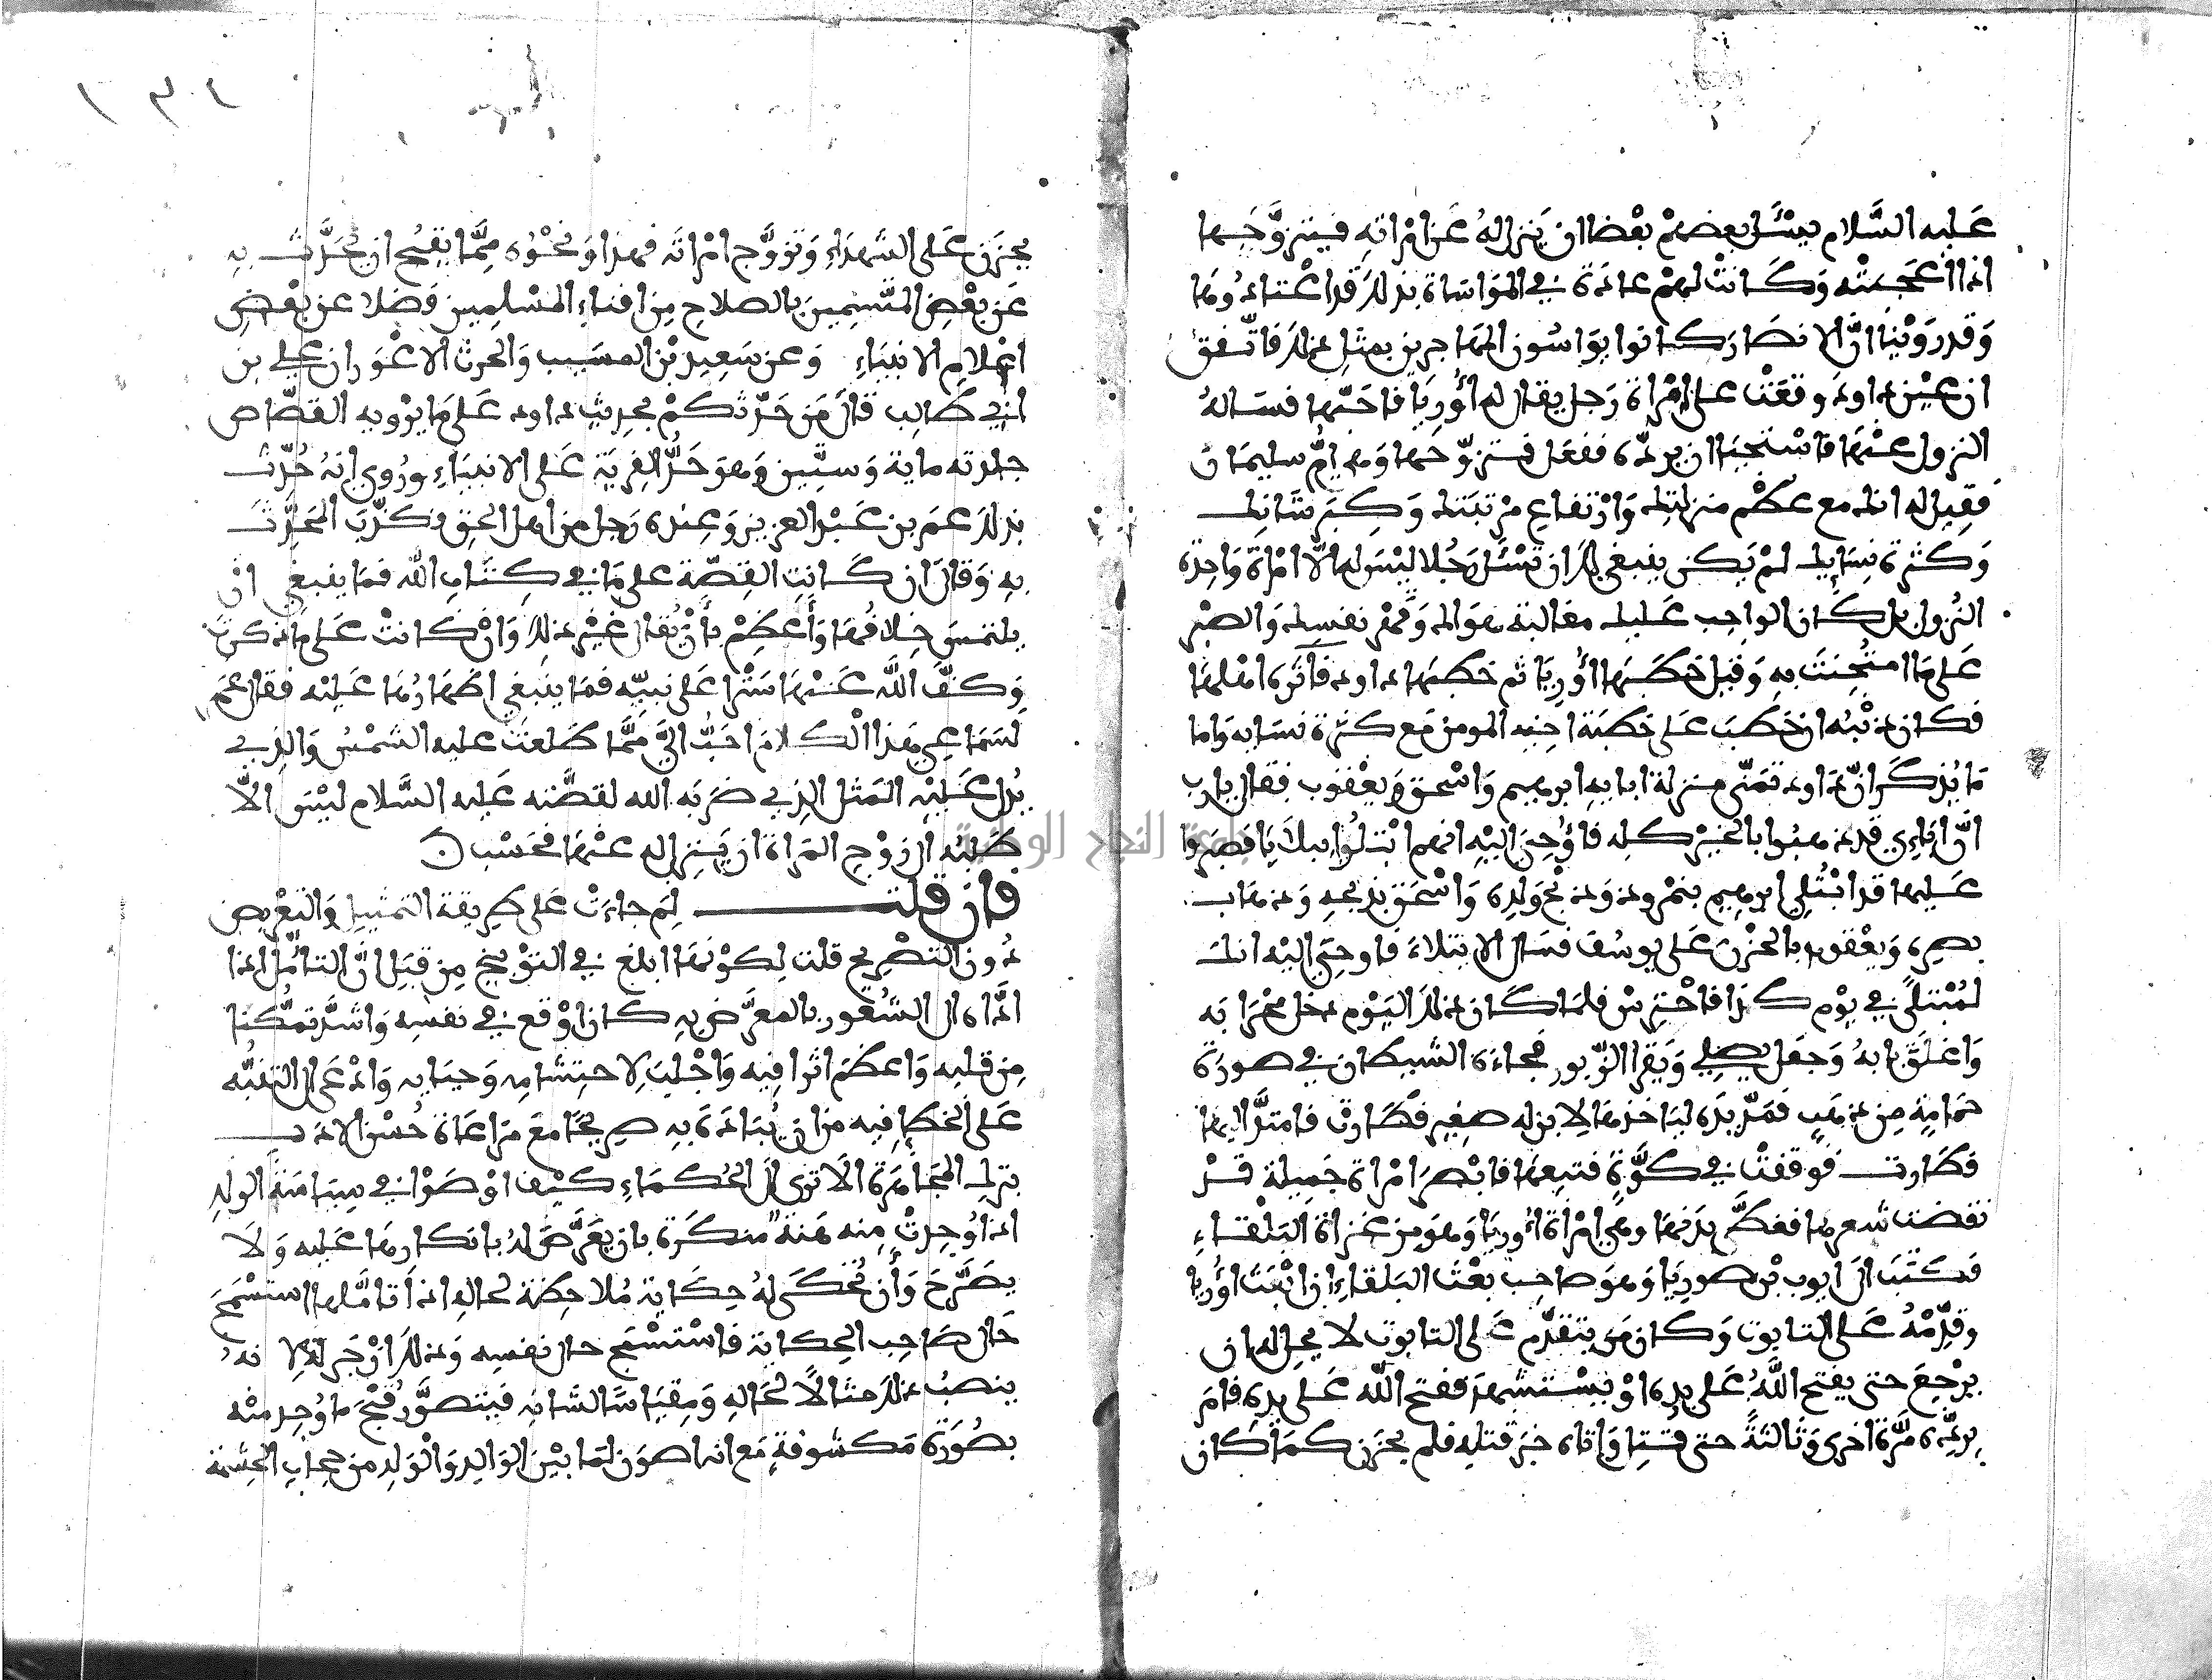 عَليه السَّلام يسْئَل بعضهمْ بعْضا ان يَنزل لهُ عَن امْراته فيتزوَّجَها
اذا اعْجبتْه وَكَانتْ لهمْ عادَة في المَواسَاة بذلك قد اعْتادُوها
وَقد رَوَيْنا انَّ الانصَار كانوا يوَاسُون المهَاجرين بمثل ذلك فاتّفق
ان عيْن داود وقعَتْ على امْراة رَجل يقال له اُورِيَا فاحَبّها فسَالهُ
النزول عنْها فاسْتحْيَا ان يردّه ففعَل فتزوّجَها وَهي امُّ سليمَان
فقِيل له انك مع عظْم منزلتك وَارْتفاعِ مرْتبَتك وَكِبَر شَانك
وَكثرة نِسَايك لمْ يَكن ينبغي لكَ ان تَسْئَل رَجُلا ليْسَ له الّا امْراة وَاحِدة
النُزول بل كَان الواجب عَليك مغالبة هوَاك وَقهْر نفسِك وَالصبْر
عَلى مَا امتُحِنتَ بهِ وَقيل خَطَبَها اُورِيَا ثم خطبَها داود فآثَره اهْلها
فكان ذنْبُه ان خَطَبَ عَلى خطبَة اخِيه المومن مَع كثرة نسَايه وَاما
مَا يُذكَر انّ دَاود تمَنّى منزلة ابايه ابرهيم وَاسْحق وَيعْقوب فقال يا رب
انّ ابَاءِي قد ذهبُوا بالخيْر كله فاُوحِيَ اليْهِ انهم ابْتلُوا ببلايَا فصَبرُوا
عَليها قد ابْتُلي ابرهيم بنمْرود وَذبْح وَلدِه وَاسْحَق بذبحهِ وَذهَاب
بصره وَيعْقوب بالحُزْن عَلى يوسُف فسَال الابتلاءَ فاوحِيَ اليْه انك
لمُبْتلىً في يوْم كذا فاحْترسْ فلمَا كان ذلك اليَوْم دخل محْرَابَه
وَاغلَق بابهُ وَجعَل يصَلي وَيَقرا الزّبور فجاءَه الشيطان في صورَة
حمَامَةٍ مِن ذهَبٍ فمَدّ يدَه ليَاخذها لِابن له صغِير فطَارتْ فامتدَّ اليها
فطَارت فوقفتْ في كوَّةٍ فتبِعَها فابْصَر امْراة جَميلة قدْ
نفضتْ شعرها فغطَّى بدَنهَا وهي امْراة اُورِيَا وَهوَ من غزاة البَلْقاءِ
فكتَبَ الَى ايوب بْن صورِيَا وَهوَ صاحب بعْث البَلقاءِ ان ابْعَثْ اُورِيا
وقدِّمْهُ عَلى التابوت وَكان مَن يتقدَّم عَلى التابوت لا يحِل له ان
يرْجعَ حتى يفتح اللَّهُ عَلى يدِه اوْ يسْتشهدَ ففتح اللّه عَلى يدِه فامَر
بردِّه مَرَّة اخرى وَثالثةً حتى قُتِل وَاتاه خبَر قتلِه فلم يحزَن كمَا كان
يحزَن عَلى الشهدَاءِ وَتزوَّج امْراتَه فهذا وَنحْوُه مِمَّا يقبُح ان يُحَدَّث بهِ
عَن بعْضِ المتَّسِمِينَ بالصلاحِ مِن افناءِ المسْلِمين فَضلا عن بعْض
اعْلامِ الانبيَاءِ وَعن سَعِيد بْن المسَيب وَالحرث الاعْوَر ان علي بن
ابي طَالب قالَ مَن حَدّثكمْ بحديث داود عَلى مَا يرْويه القصّاص
جلدته ماية وَستِّين وهوَ حَدُّ الفِريَة عَلى الانبيَاءِ ورُوي انهُ حُدّث
بذلك عمَر بن عَبْد العزيز وَعِنده رَجل من اهل الحق فكذَّبَ المحَدِّثَ
بهِ وَقالَ ان كَانتِ القِصّة على مَا في كِتَاب اللّه فمَا ينبغي انْ
يلتمسَ خِلافُها وَأعظِمْ بأنْ يُقال غيْر ذلك وَانْ كانتْ عَلى مَا ذكرتَ
وَكفَّ اللَّه عَنْها سَتْرا عَلى نبيّه فمَا ينبَغي اظهَارُها عَليْه فقال عمَر
لَسَمَاعِي هَذا الْكلامَ احَبُّ اليَّ مِمَّا طَلعَتْ عليه الشمْسُ وَالذِي
يدُلّ عَليْهِ المَثل الذِي ضرَبَه الله لقصَّته عَليه السَّلام ليْسَ الّا
طَلبُه الى زوْج المَراة ان يَنزل له عنْها فحَسْب
فان قلت لِمَ جاءَتْ عَلى طرِيقة التمثيل وَالتعْريض
دُون التصْريح قلت لِكوْنهَا ابلغ في التوْبيخ مِن قبَل انَّ التامُّل اذا
ادَّاه الى الشعُور بالمعرَّض به كان اوْقع في نفسِه وَاشدَّ تمكّنا
مِن قلبِه وَاعظَم اثرا فيه وَاجْلبَ لِاحتشامِه وَحيَايه وَادْعَى الى التنبُّه
عَلى الخطا فيه من ان يُبَادَه بِه صريحًا مَع مرَاعَاة حُسْن الادَب
بترك المجَاهَرة الَا ترى الَى الحُكمَاءِ كيْف اوْصَوْا في سِيَاسَة الوَلد
اذا وُجِدتْ منه هَنة منكَرة بان يعَرَّضَ لهُ بانكارها عَليه وَلَا
يصَرَّحَ وَأن تُحكَى لهُ حِكَاية مُلاحِظة لحَاله اذا تَامَّلها استسْمَجَ
حَال صَاحِب الحِكاية فاسْتسْمَج حال نفسِه وَذلك ازْجَر له لِانهُ
ينصبُ ذلك مثالًا لحَالهِ وَمِقيَاسًا لشانه فيتصوَّر قبْحَ ما وُجِد منْه
بصُورَة مَكشوفةٍ مَع انه اصوَن لمَا بيْن الوَالِد وَالْوَلد مِن حِجَاب الحِشمَة